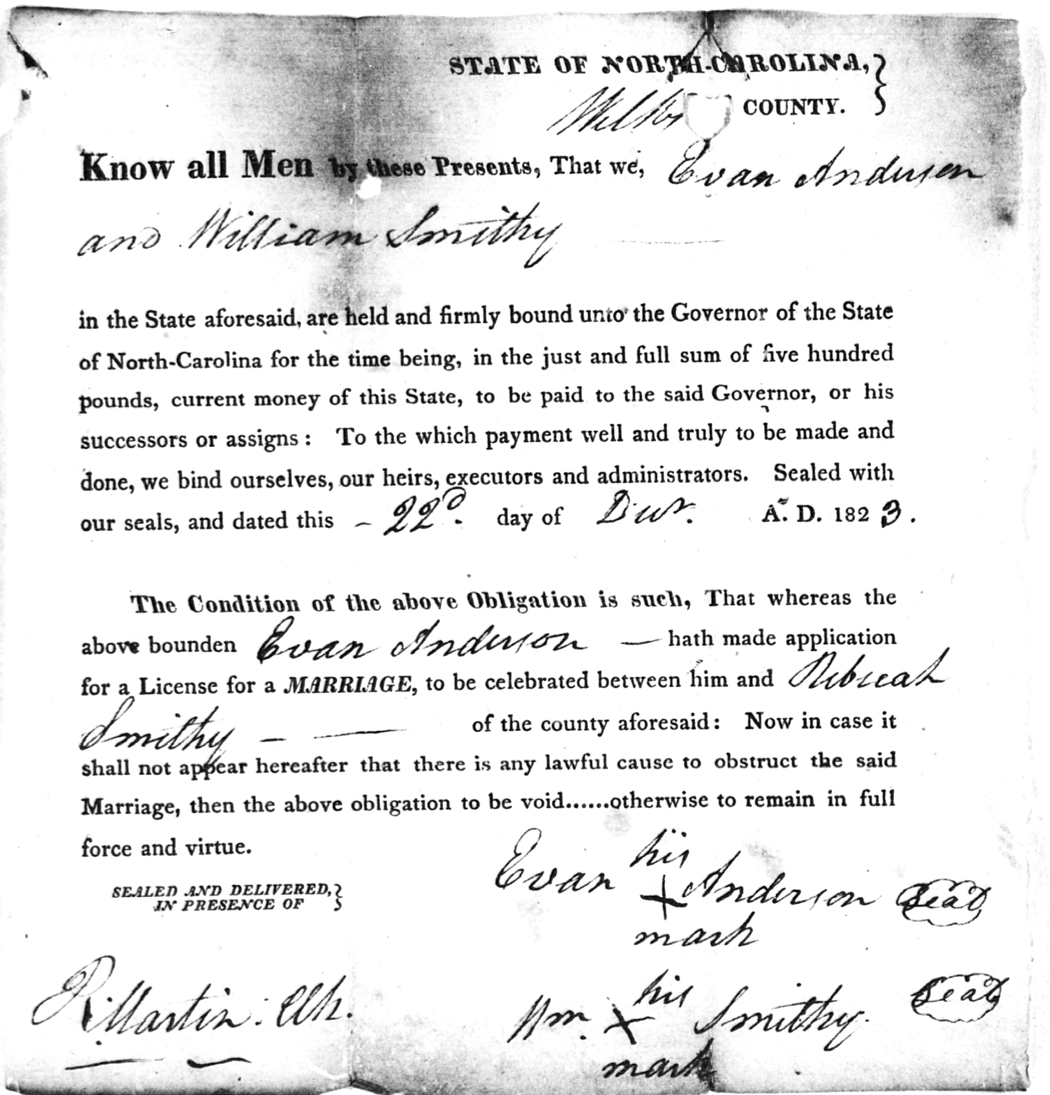 STATE OF NORTH-CAROLINA,
Wilkes COUNTY.
Know all Men by these Presents, That we, Evan Anderson
and William Smithy
in the State aforesaid, are held and firmly bound unto the Governor of the State
of North-Carolina for the time being, in the just and full sum of five hundred
pounds, current money of this State, to be paid to the said Governor, or his
successors or assigns: To the which payment well and truly to be made and
done, we bind ourselves, our heirs, executors and administrators. Sealed with
our seals, and dated this – 22d. day of Decr. A. D. 1823.
The Condition of the above Obligation is such, That whereas the
above bounden Evan Anderson — hath made application
for a License for a MARRIAGE, to be celebrated between him and Rebecah
Smithy – — of the county aforesaid: Now in case it
shall not appear hereafter that there is any lawful cause to obstruct the said
Marriage, then the above obligation to be void......otherwise to remain in full
force and virtue.
SEALED AND DELIVERED,
IN PRESENCE OF
Evan his X mark Anderson Seal
R. Martin: Clk.
Wm. his X mark Smithy. Seal